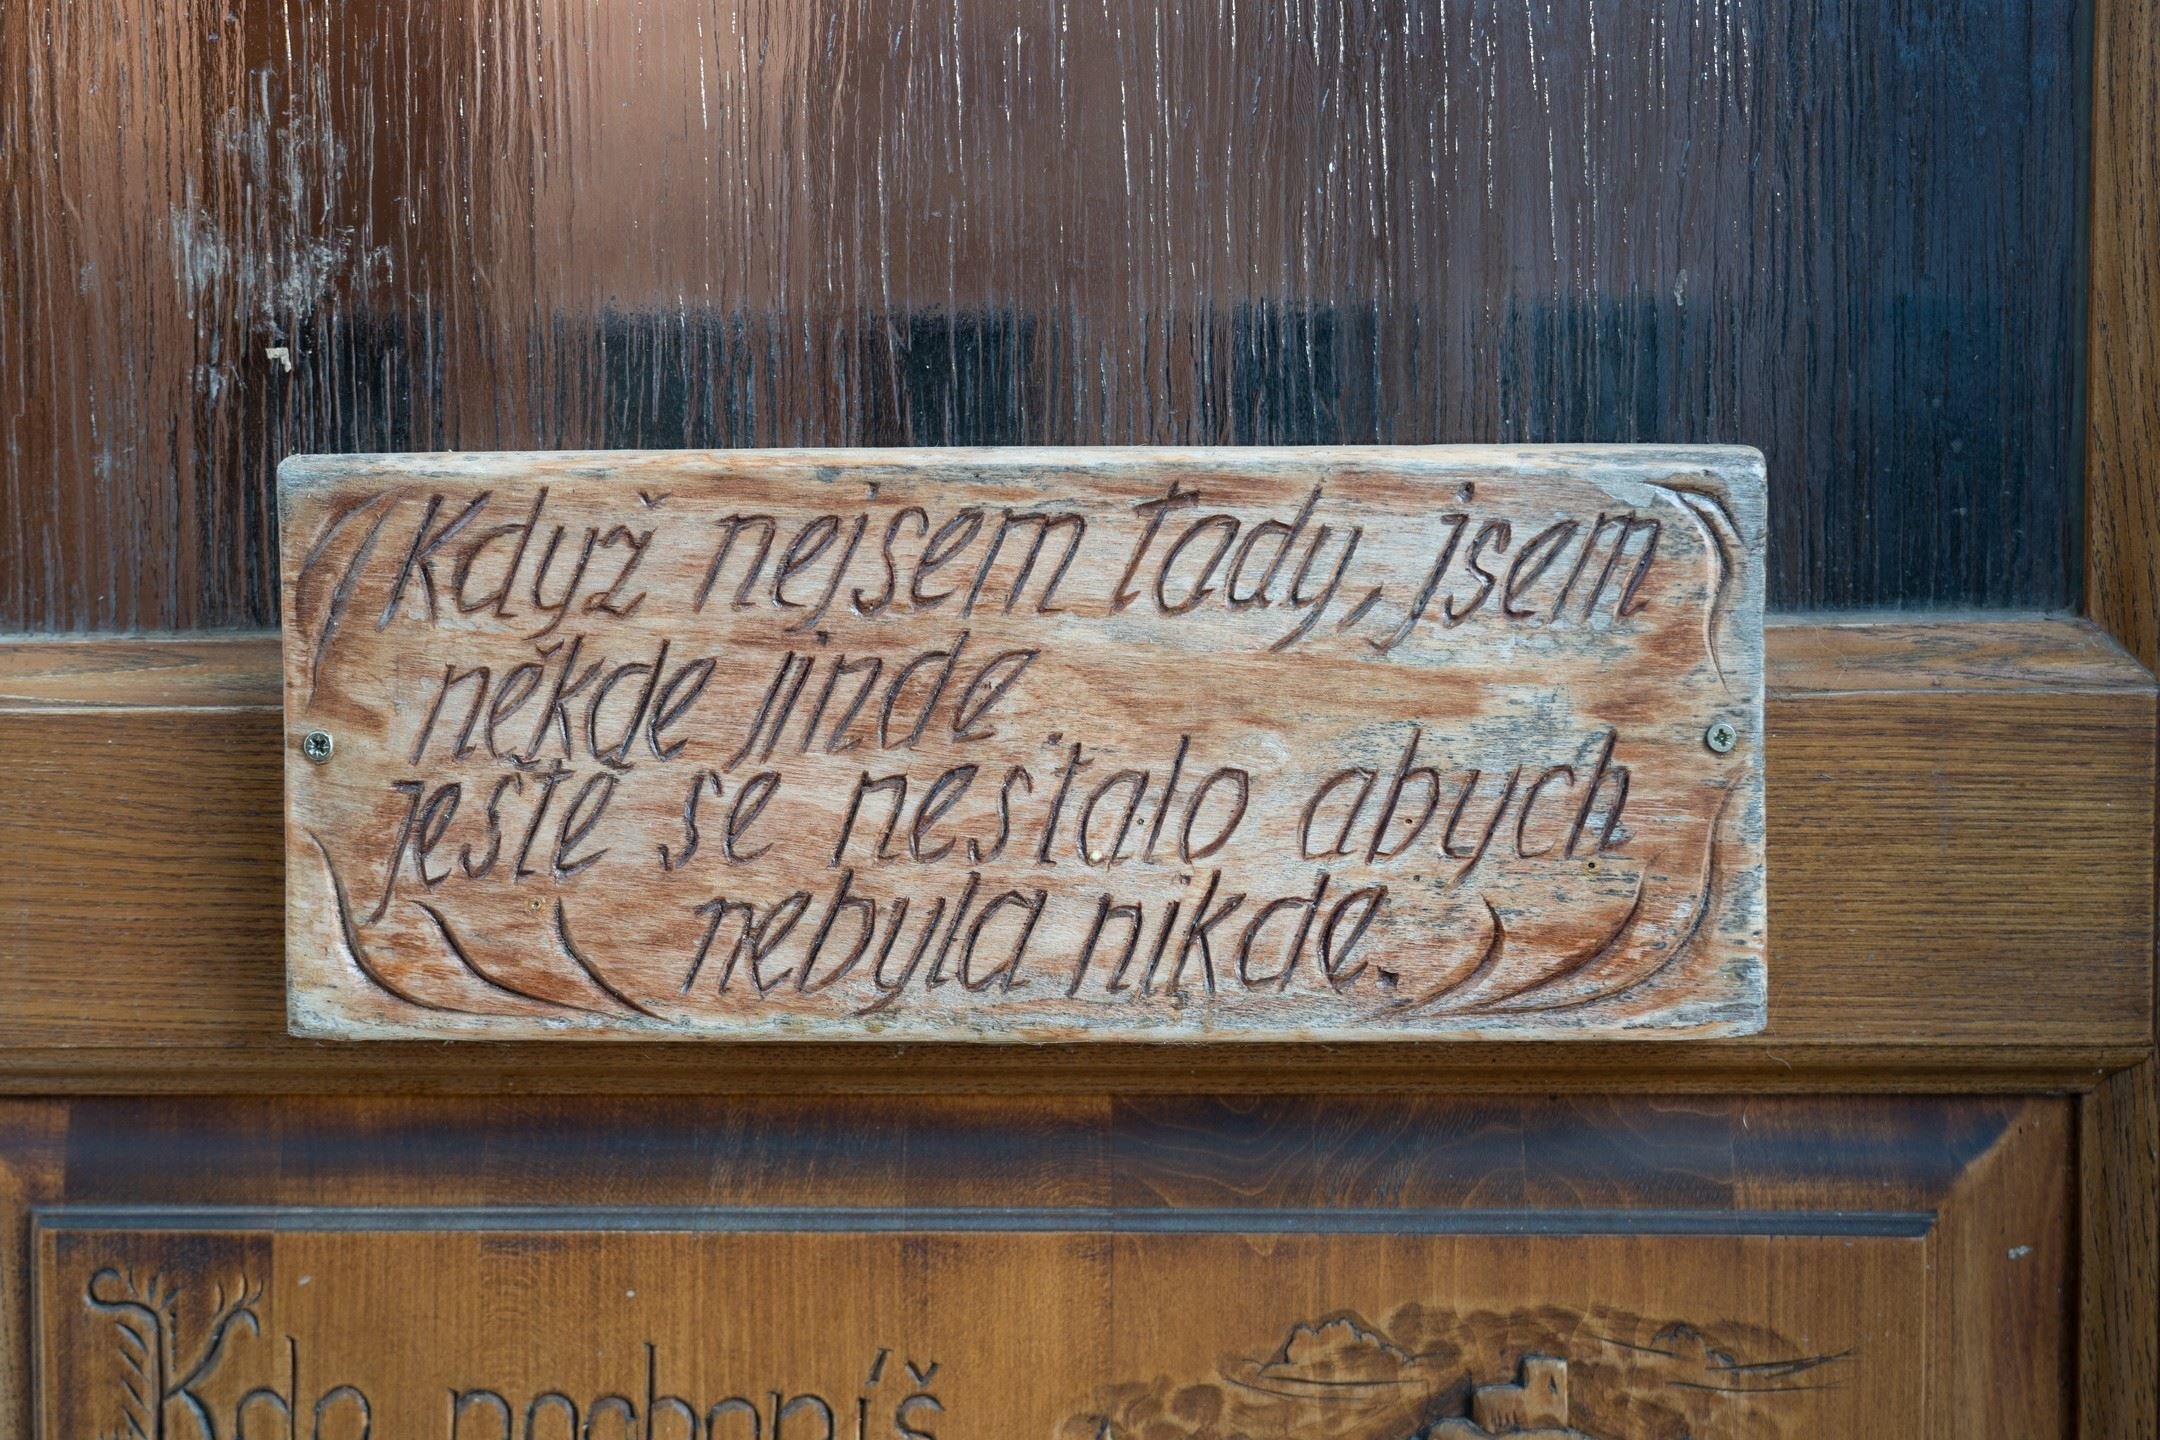 Když nejsem tady, jsem
někde jinde
ještě se nestalo abych
nebyla nikde.
Kdo pochopíš